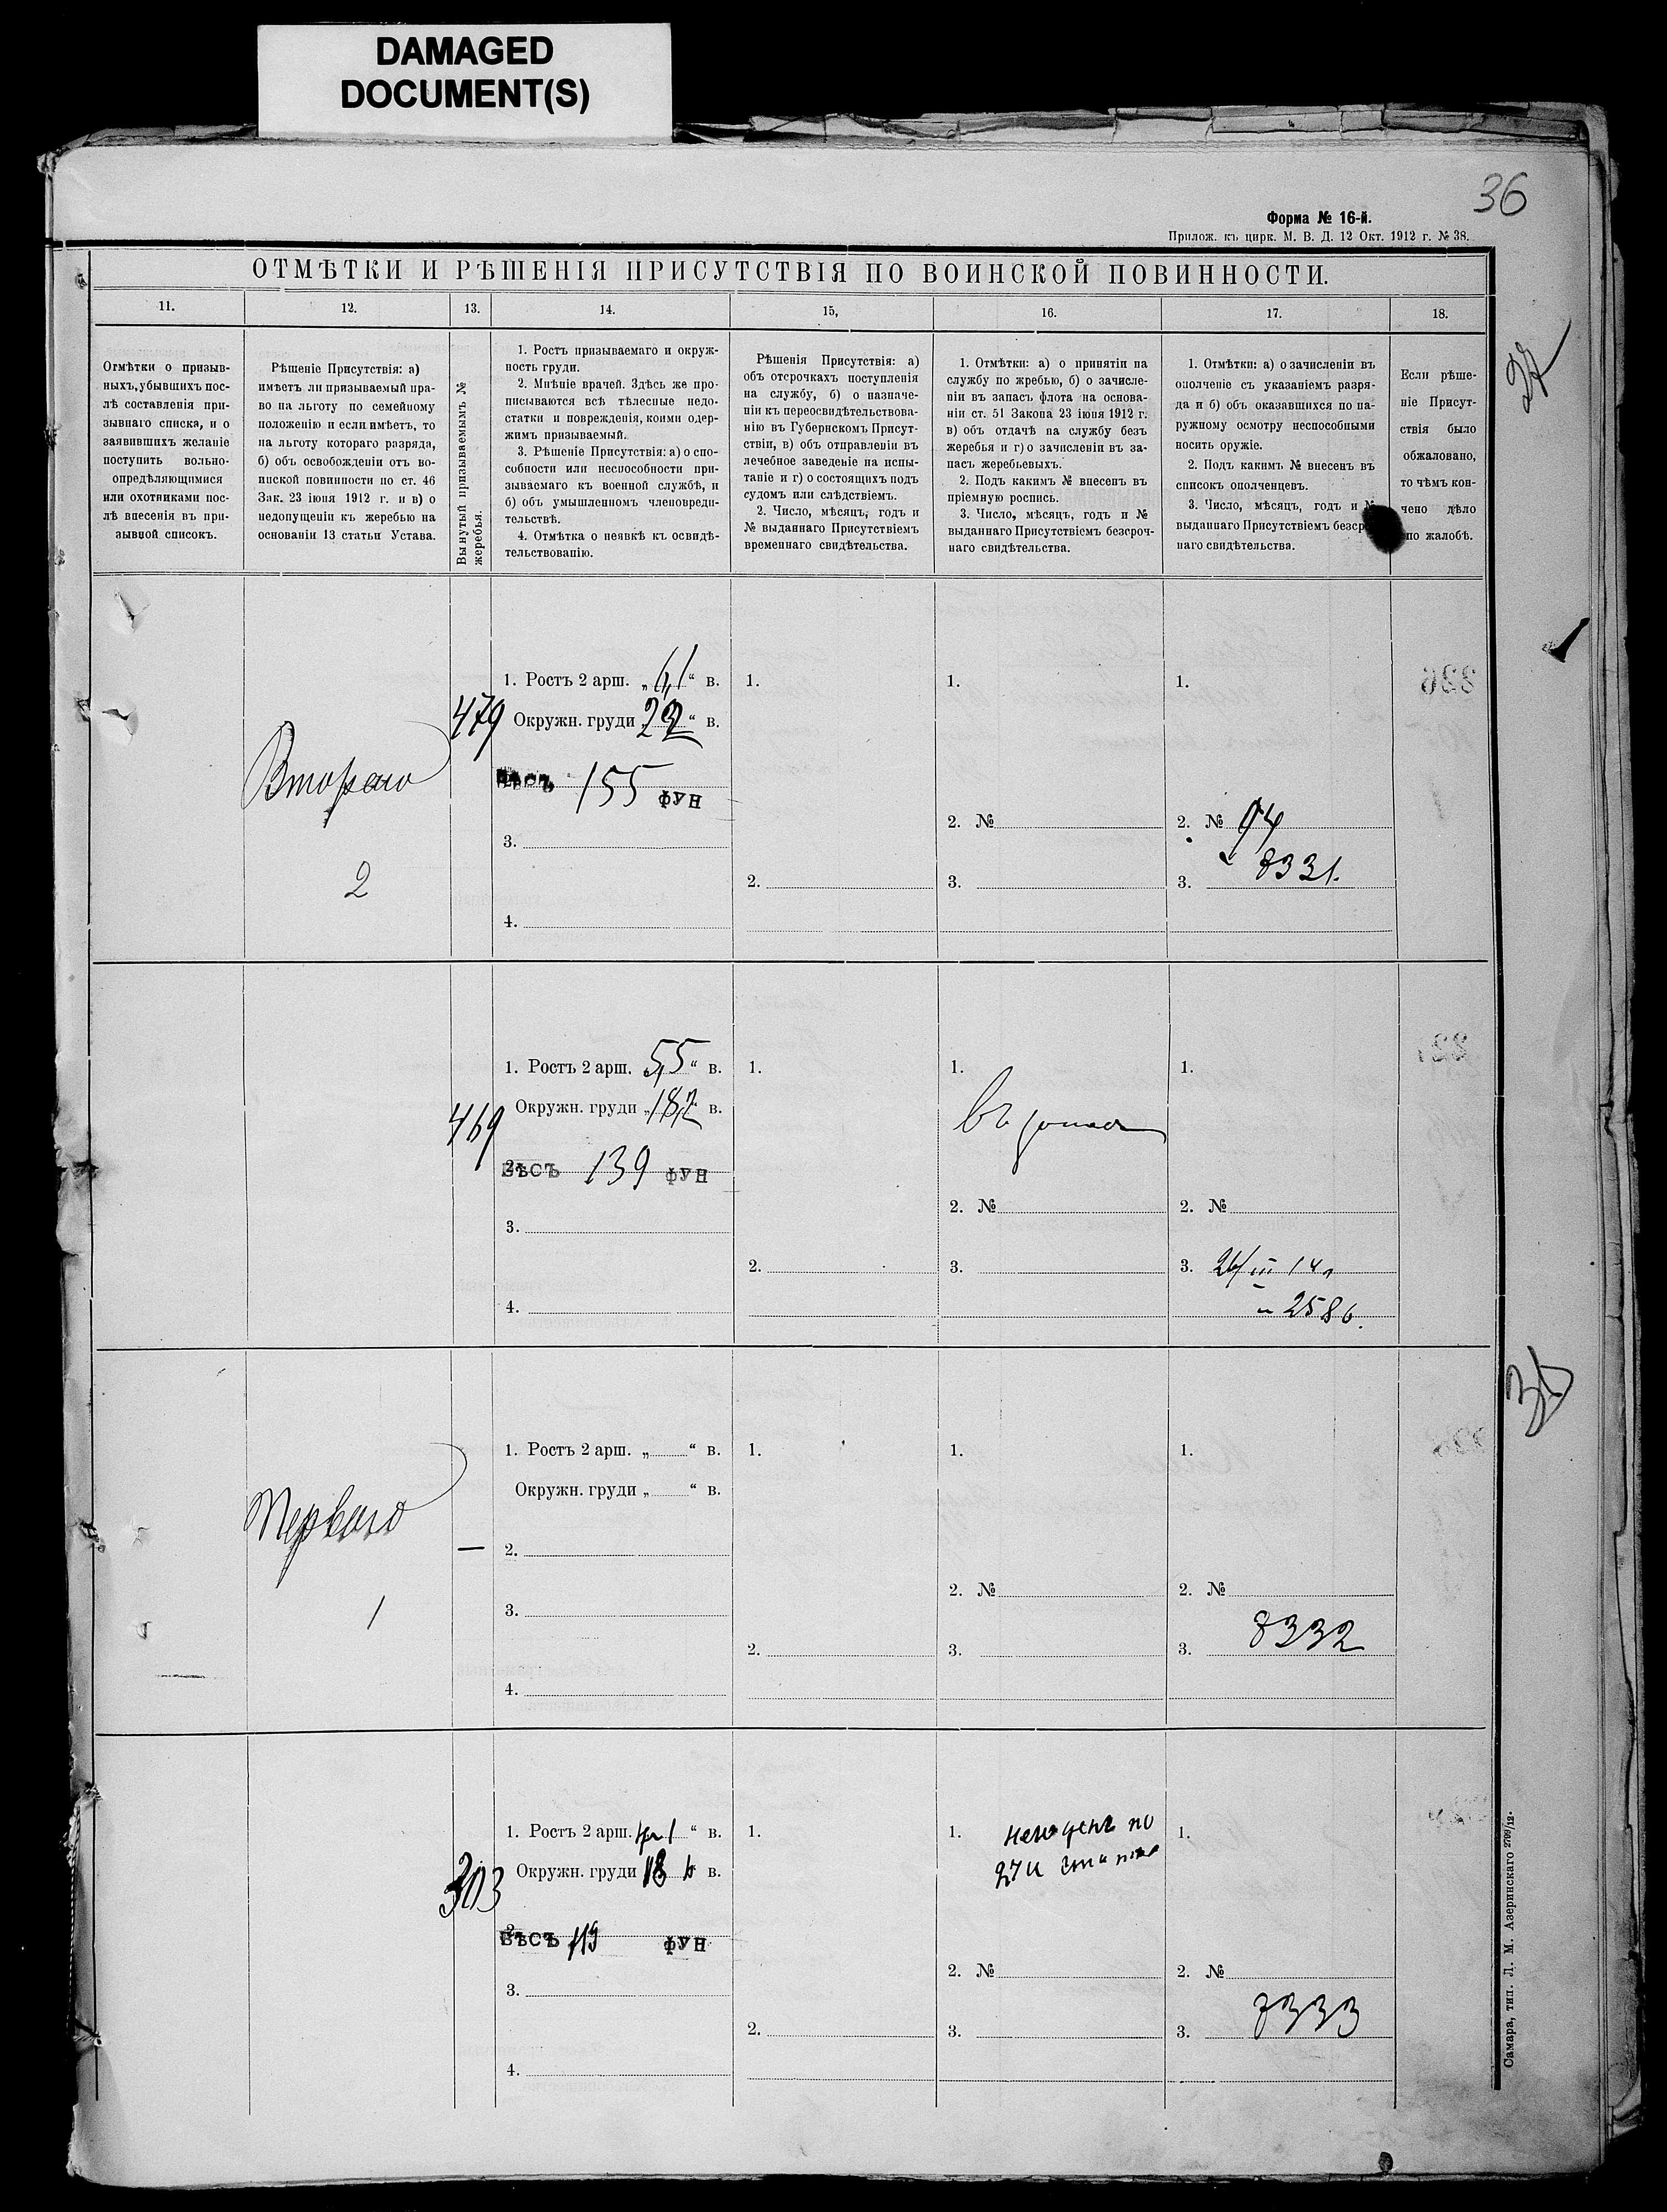 DAMAGED
DOCUMENT(S)
36
Форма № 16-й.
Прилож. къ цирк. М. В. Д. 12 Окт. 1912 г. № 38.
ОТМѢТКИ И РѢШЕНІЯ ПРИСУТСТВІЯ ПО ВОИНСКОЙ ПОВИННОСТИ.
11.
12.
13.
14.
15,
16.
17.
18.
Отмѣтки о призыв-
ныхъ, убывшихъ пос-
лѣ составленія при-
зывнаго списка, и о
заявившихъ желаніе
поступить вольно-
опредѣляющимися
или охотниками пос-
лѣ внесенія въ при-
зывной списокъ.
Рѣшеніе Присутствія: а)
имѣетъ ли призываемый пра-
во на льготу по семейному
положенію и если имѣетъ, то
на льготу котораго разряда,
б) объ освобожденіи отъ во-
инской повинности по ст. 46
Зак. 23 іюня 1912 г. и в) о
недопущеніи къ жеребью на
основаніи 13 статьи Устава.
Вынутый призываемымъ №
жеребья.
1. Ростъ призываемаго и окруж-
ность груди.
2. Мнѣніе врачей. Здѣсь же про-
писываются всѣ тѣлесные недо-
статки и поврежденія, коими одер-
жимъ призываемый.
3. Рѣшеніе Присутствія: а) о спо-
собности или неспособности при-
зываемаго къ военной службѣ, и
б) объ умышленномъ членовреди-
тельствѣ.
4. Отмѣтка о неявкѣ къ освидѣ-
тельствованію.
Рѣшенія Присутствія: а)
объ отсрочкахъ поступленія
на службу, б) о назначе-
ніи къ переосвидѣтельствова-
нію въ Губернскомъ Присут-
ствіи, в) объ отправленіи въ
лечебное заведеніе на испы-
таніе и г) о состоящихъ подъ
судомъ или слѣдствіемъ.
2. Число, мѣсяцъ, годъ и
№ выданнаго Присутствіемъ
временнаго свидѣтельства.
1. Отмѣтки: а) о принятіи на
службу по жребью, б) о зачисле-
ніи въ запасъ флота на основа-
ніи ст. 51 Закона 23 іюня 1912 г.
в) объ отдачѣ на службу безъ
жеребья и г) о зачисленіи въ за-
пасъ жеребьевыхъ.
2. Подъ какимъ № внесенъ въ
пріемную роспись.
3. Число, мѣсяцъ, годъ и №
выданнаго Присутствіемъ безсроч-
наго свидѣтельства.
1. Отмѣтки: а) о зачисленіи въ
ополченіе съ указаніемъ разря-
да и б) объ оказавшихся по на-
ружному осмотру неспособными
носить оружіе.
2. Подъ какимъ № внесенъ въ
списокъ ополченцевъ.
3. Число, мѣсяцъ, годъ и №
выданнаго Присутствіемъ безсро
наго свидѣтельства.
Если рѣше-
ніе Присут-
ствія было
обжаловано,
то чѣмъ кон-
чено дѣло
по жалобѣ.
Второго
2
479
1. Ростъ 2 арш. „ 6,1 “ в.
Окружн. груди „ “ в.
вѣсъ 155 ФУН
3.
4.
1.
2.
1.
2. №
3.
1.
2. № 94
3. 8331.
469
1. Ростъ 2 арш. „ 5,5 “ в.
Окружн. груди „ 18,2 “ в.
2. вѣсъ 139 ФУН
3.
4.
1.
2.
1.
2. №
3.
1.
2. №
3. 26/III 14 г
2586.
Перваго
1
—
1. Ростъ 2 арш. „ “ в.
Окружн. груди „ “ в.
2.
3.
4.
1.
2.
1.
2. №
3.
1.
2. №
3. 8332
303
1. Ростъ 2 арш. “ в.
Окружн. груди 18 в.
2. вѣсъ 119 ФУН
3.
4.
1.
2.
1. по
2. №
3.
1.
2. №
3. 8333
Самара, тип. Л. М. Азеринскаго 2709/12.